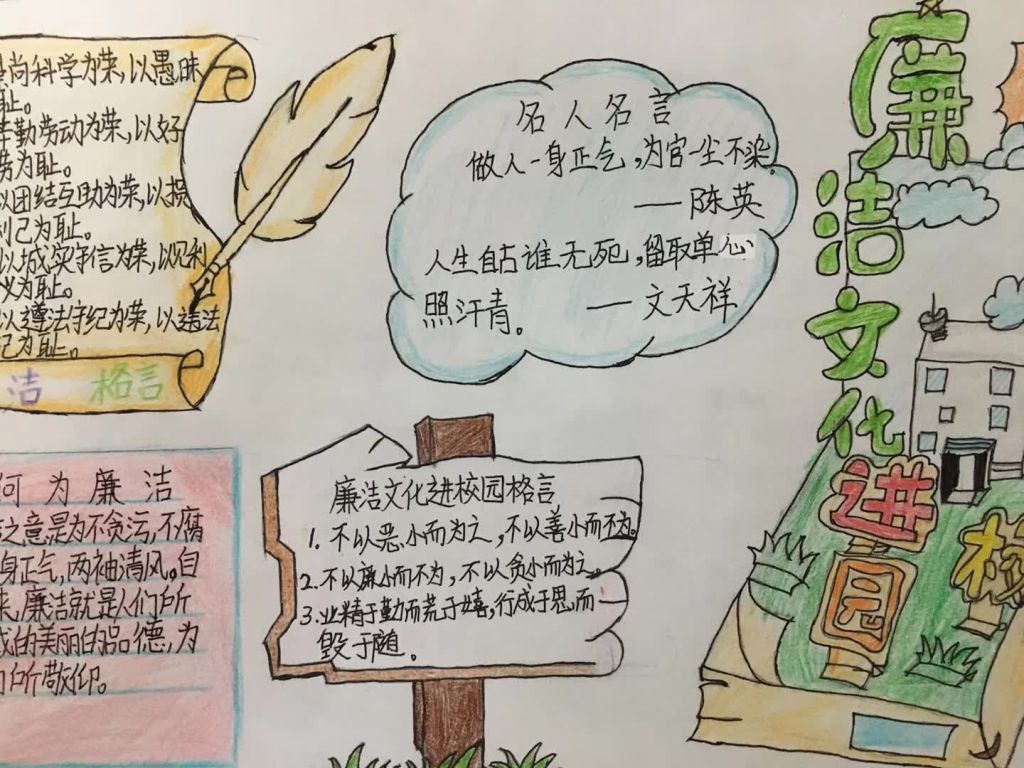 尚科学为荣,以愚昧
耻。
辛勤劳动为荣,以好
劳为耻。
以团结互助为荣,以损
利己为耻。
以诚实守信为荣,以见利
义为耻。
以遵法守纪为荣,以违法
纪为耻。
洁 格言
何为廉洁
之意是为不贪污,不腐
身正气,两袖清风。自
来,廉洁就是人们所
成的美丽的品德,为
所敬仰。
名人名言
做人一身正气,为官一尘不染。
——陈英
人生自古谁无死,留取单心
照汗青。 ——文天祥
廉洁文化进校园格言
1. 不以恶小而为之,不以善小而不为。
2. 不以廉小而不为,不以贪小而为之。
3. 业精于勤而荒于嬉,行成于思而
毁于随。
廉洁文化进校园